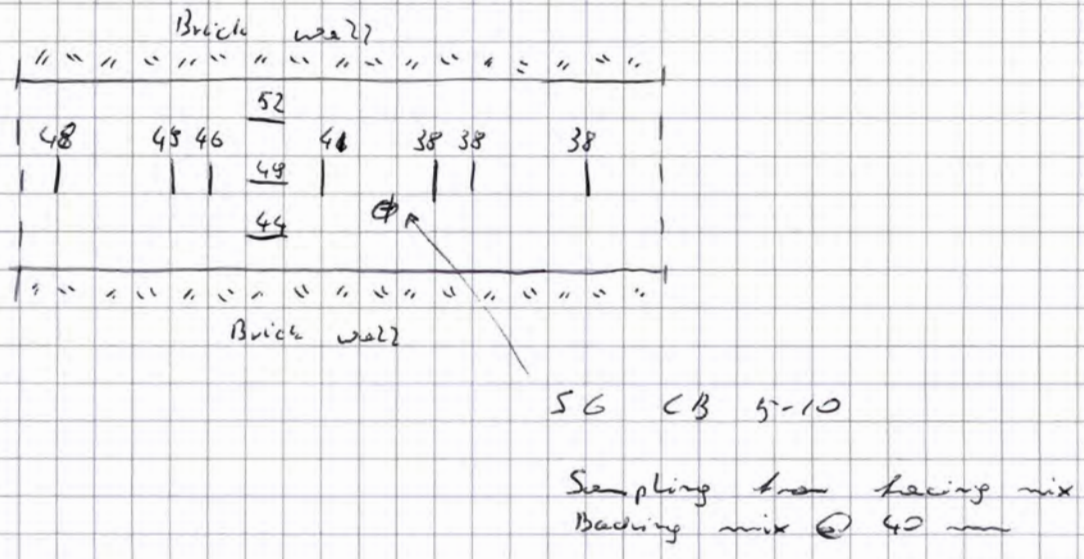 Brick wall
52
48 45 46 41 38 38 38
49
44
Brick wall
SG CB 5-10
Sampling from facing mix
Backing mix @ 40 mm